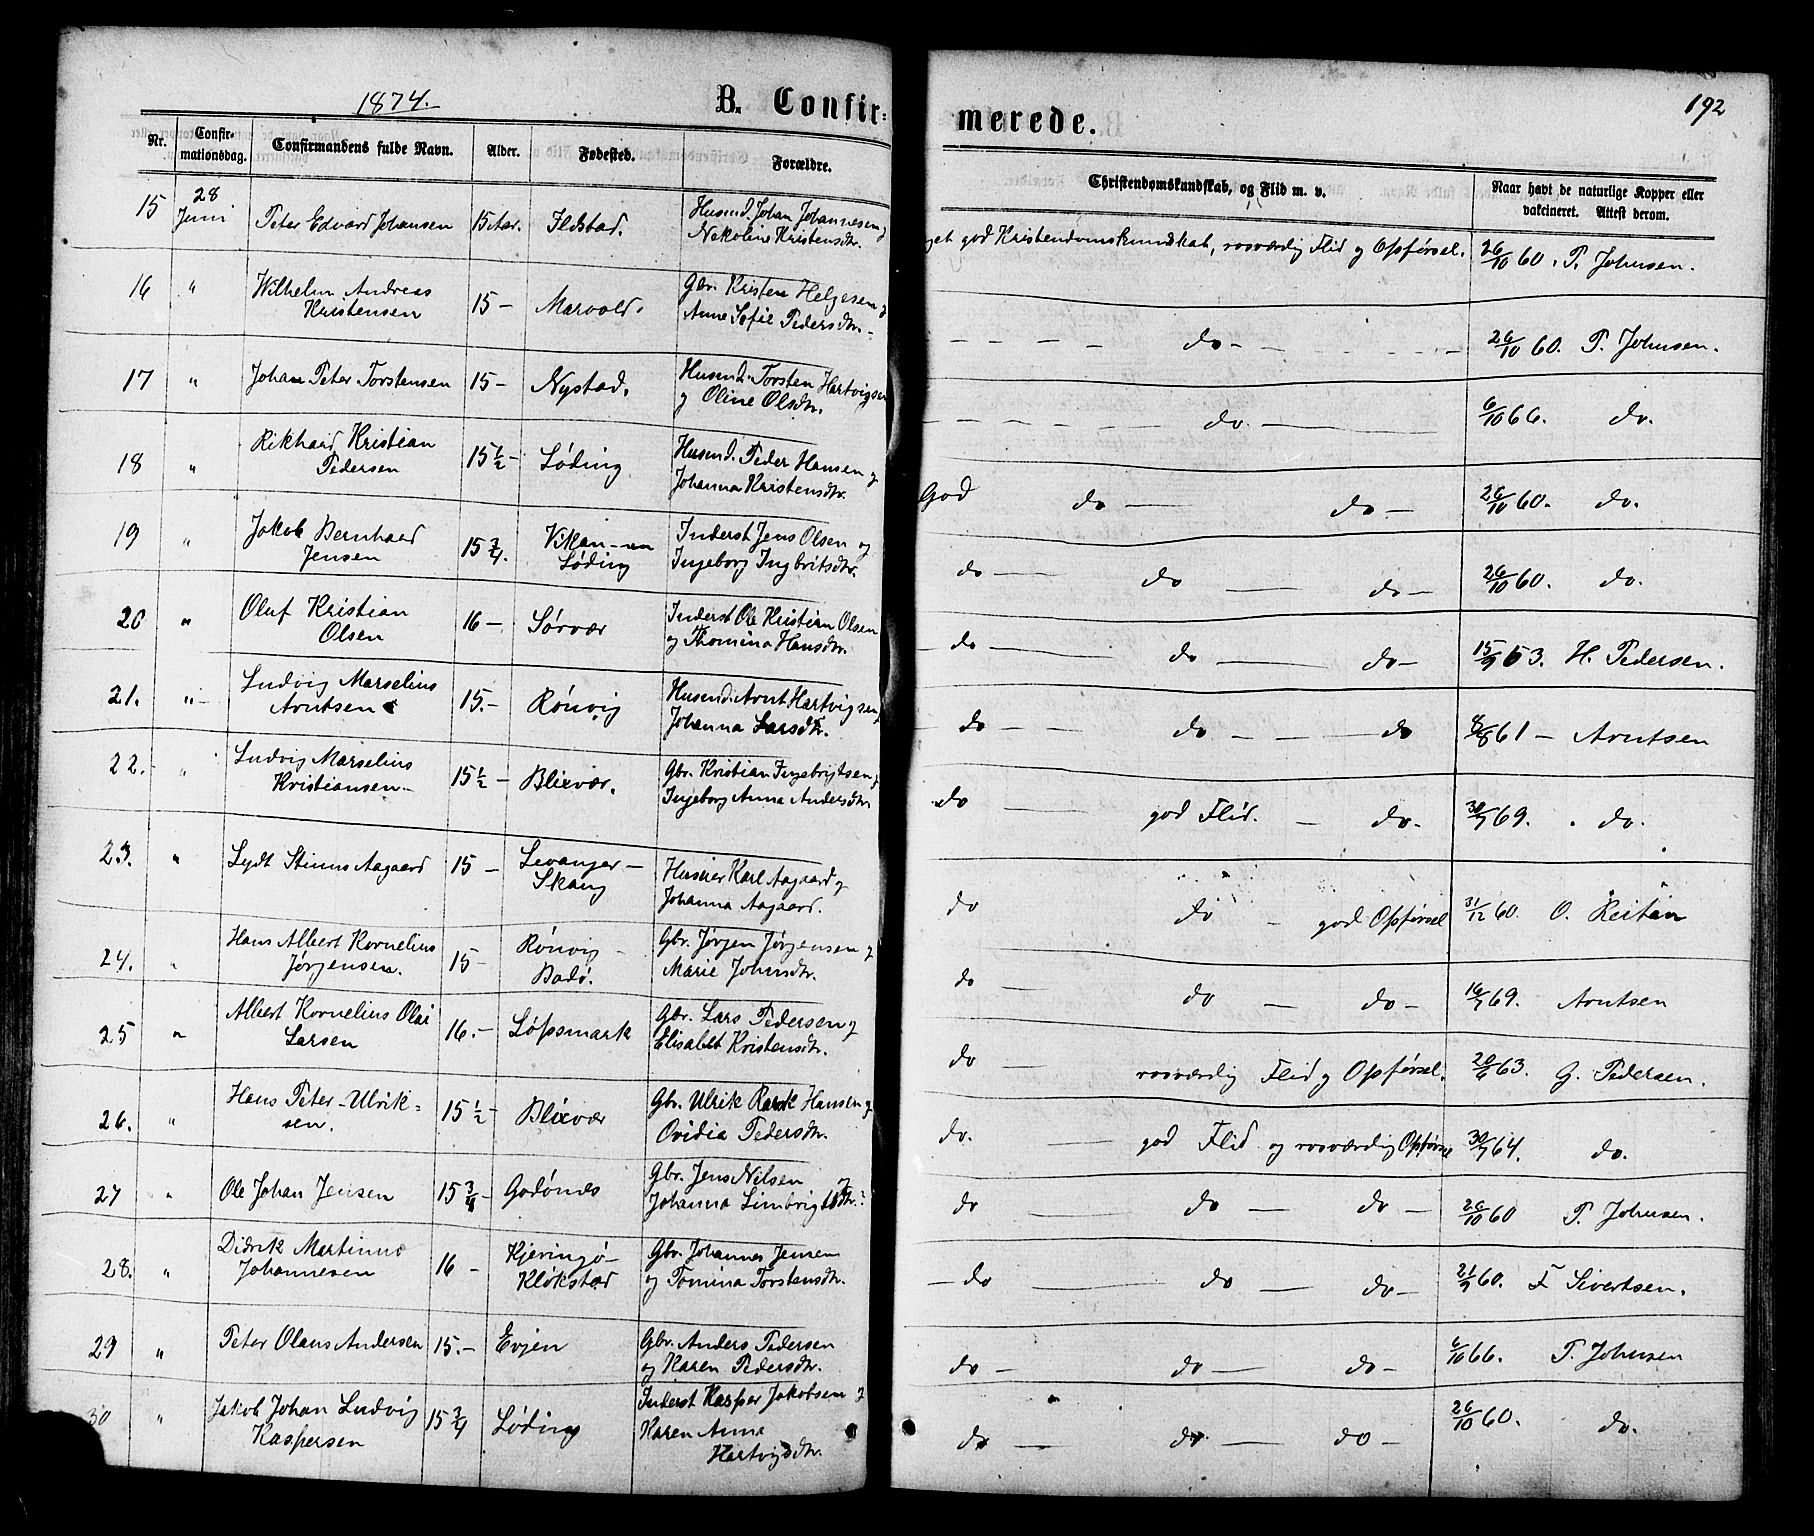 1874.
B. Confir-
merede.
192
Nr.
Confir-
mationsdag.
Confirmandens fulde Navn.
Alder.
Fødested.
Forældre.
Christendomskundskab, og Flid m. v.
Naar havt de naturlige Kopper eller
vakcineret. Attest derom.
15 28 Juni Peter Edvard Johansen 15 Aar. Ilstad. Husmd. Johan Johannesen og
Nekoline Kristensdtr.
get god Kristendomskundskab, rosværdig Flid og Opførsel. 26/10 60. P. Johnsen.
16 " Wilhelm Andreas
Kristensen 15 - Marvold. Gbr. Kristen Helgesen og
Anne Sofie Pedersdtr. -
do - 26/10 60. P. Johnsen.
17 " Johan Peter Torstensen 15 - Nystad. Husmd. Torsten Hartvigsen
og Oline Olsdtr.
do. 6/10 66. do.
18 " Rikhard Kristian
Pedersen 15 1/2 - Løding Husmd. Peder Hansen og
Johanna Kristensdtr.
God do - do - 26/10 60. do.
19 " Jakob Bernhard
Jensen 15 3/4. Vikan - 
Løding Inderst Jens Olsen og
Ingeborg Ingbritsdtr.
do - do - do - 26/10 60. do.
20 " Oluf Kristian
Olsen 16 - Sørvær Inderst Ole Kristian Olsen
og Thomina Hansdtr.
do - do - do - 15/9 63. H. Pedersen.
21. " - Ludvig Marselius
Arntsen 15. - Rönvig Husmd. Arnt Hartvigsen
Johanna Larsdtr.
do - do - do 61 - Arntsen
22. - " Ludvig Marselius
Kristiansen - 15 1/2 - Blixvær. Gbr. Kristian Ingebrigtsen og
Ingeborg Anna Andersdtr.
do - god Flid. - do - 30/7 69. do.
23. " Lydt Aagaard 15 - Levanger -
Skaug Huseier Karl Aagaard og
Johanna Aagaard.
do do - god Opførsel 31/12 60. O. Reitan
24. " Hans Albert Kornelius
Jørgensen. 15 - Rönvig -
Bodö. Gbr. Jørgen Jørgensen og
Marie Johnsdtr.
do - do - do - 16/7 69. Arntsen
25 " Albert Kornelius Olai
Larsen 16. - Løpsmark Gbr. Lars Pedersen og
Elisabet Kristensdtr.
do - rosværdig Flid og Opførsel. 63. G. Pedersen.
26. " Hans Peter Ulrik-
sen. 15 1/2 - Blixvær Gbr. Ulrik Hansen og
Ovidia Pedersdtr.
do. - god Flid og rosværdig Opførsel 30/7 64. do.
27 " Ole Johan Jensen 15 3/4 - Godönes Gbr. Jens Nilsen og
Johanna
do do - do - 26/10 60 P. Johnsen.
28. " Didrik Martinus
Johannesen 16 - Kjeringö -
Klökstad Gbr. Johannes Jensen
og Tomina Torstensdtr.
- do do do - 21/9 60. F Sivertsen.
29 " Peter Olaus Andersen 15. - Evjen Gbr. Anders Pedersen
og Karen Pedersdtr.
do - do - do - 6/10 66. P. Johnsen
30 " Jakob Johan Ludvig
Kaspersen 15 3/4 Løding Inderst Kasper Jakobsen og
Karen Anna
Hartvigsdtr.
do - do - do - 26/10 60. do.